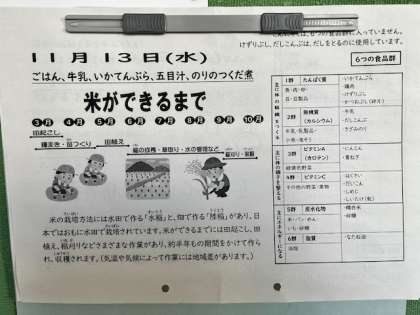 は、6つの食品群に入っていません。
けずりぶし、だしこんぶは、だしをとるのに使用しています。
11月13日(水)
ごはん、牛乳、いかてんぷら、五目汁、のりのつくだ煮
米ができるまで
3月 4月 5月 6月 7月 8月 9月 10月
田起こし
種まき・苗づくり
田植え
稲の成長・草取り・水の管理など
稲刈り・乾燥
米の栽培方法には水田で作る「水稲」と、畑で作る「陸稲」があり、日
本ではおもに水田で栽培されています。米ができるまでには田起こし、田
植え、稲刈りなどさまざまな作業があり、約半年もの期間をかけて作ら
れ、収穫されます。(気温や気候によって作業には地域差があります。)
6つの食品群
1群 たんぱく質
魚・肉・卵・
豆・豆製品
・いかてんぷら
・鶏肉
・けずりぶし
2群 無機質
(カルシウム)
牛乳・乳製品・
小魚・海そう
・牛乳
・だしこんぶ
・きざみのり
3群 ビタミンA
(カロテン)
緑黄色野菜
・にんじん
・葉ねぎ
4群 ビタミンC
その他の野菜・果物
・はくさい
・だいこん
・しめじ
5群 炭水化物
米・パン・めん
いも・砂糖
・精白米
・砂糖
6群 脂質
油脂
・なたね油